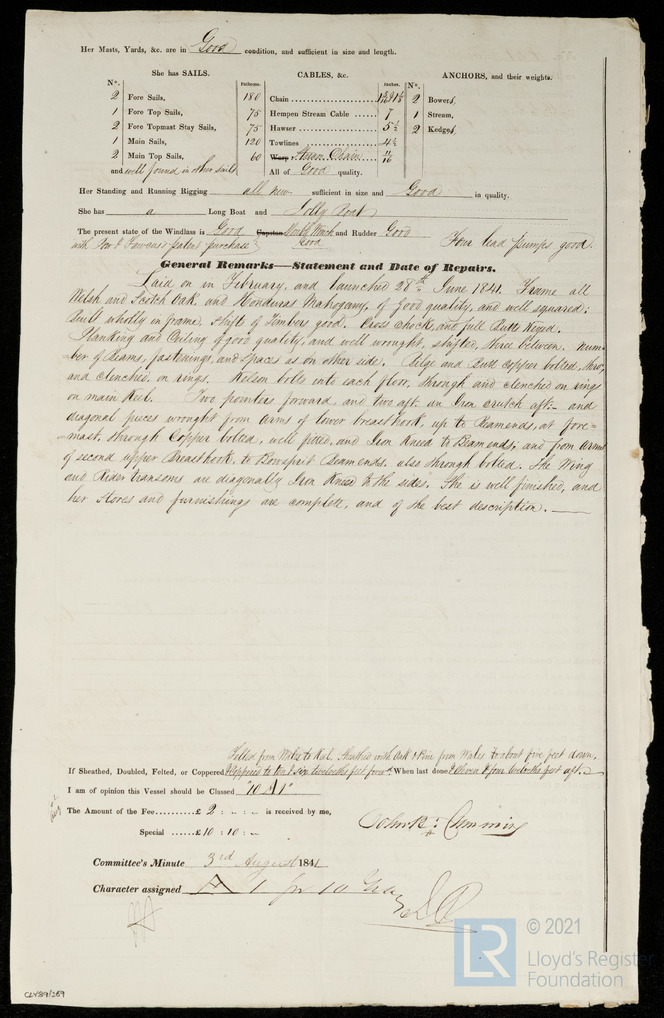 Her Masts, Yards, &c. are in Good condition, and sufficient in size and length.
She has SAILS. CABLES, &c. ANCHORS, and their weights.
N°. Fathoms. Inches. N°.
2 Fore Sails, 180 Chain 2 Bowers,
1 Fore Top Sails, 75 Hempen Stream Cable 7 1 Stream,
2 Fore Topmast Stay Sails, 75 Hawser 5½ 2 Kedges,
1 Main Sails, 120 Towlines 4½
2 Main Top Sails, 60 Warp Stream Chain 11/16
and well found in other sails All of Good quality.
Her Standing and Running Rigging all new sufficient in size and Good in quality.
She has a Long Boat and Jolly Boat
The present state of the Windlass is Good Capstan Winch and Rudder Good
with patent purchase Good Four lead pumps good.
General Remarks—Statement and Date of Repairs.
Laid on in February, and launched 28th June 1841. Frame all
Welsh and Scotch Oak, and Honduras Mahogany, of Good quality, and well squared;
Built wholly in frame, shift of Timbers good. Cross chock, and full Butts Keyed.
Planking and Ceiling of good quality, and well wrought, shifted, three between. Num-
ber of Beams, fastenings, and spaces as on other side. Bilge and Butt copper bolted, thro,
and clenched, on rings. Kelson bolts into each floor, through and clenched on rings
on main Keel. Two pointers forward, and two aft. an Iron crutch aft:- and
diagonal pieces wrought from arms of lower breasthook, up to Beamends, at fore=
mast, through Copper bolted, well fitted, and Iron Kneed to Beamends; and from arms
of second upper Breasthook, to Bowsprit Beamends. also through bolted. The Wing
and Rider transoms are diagonally Iron Kneed to the sides. She is well finished, and
her stores and furnishings are complete, and of the best description.
Felted from Wales to Keel, Sheathed with Oak & Pine from Wales to about five feet down,
If Sheathed, Doubled, Felted, or Coppered Coppered to ten & six twelveths feet forwd. When last done & eleven & four twelveths feet aft.
I am of opinion this Vessel should be Classed "10 A 1"
The Amount of the Fee......£ 2 : - : - is received by me,
Special ......£ 10 : 10 : -
Committee's Minute 3rd August 1841
Character assigned A 1 for 10 Yea
CLY89/259
LR
© 2021
Lloyd's Register
Foundation